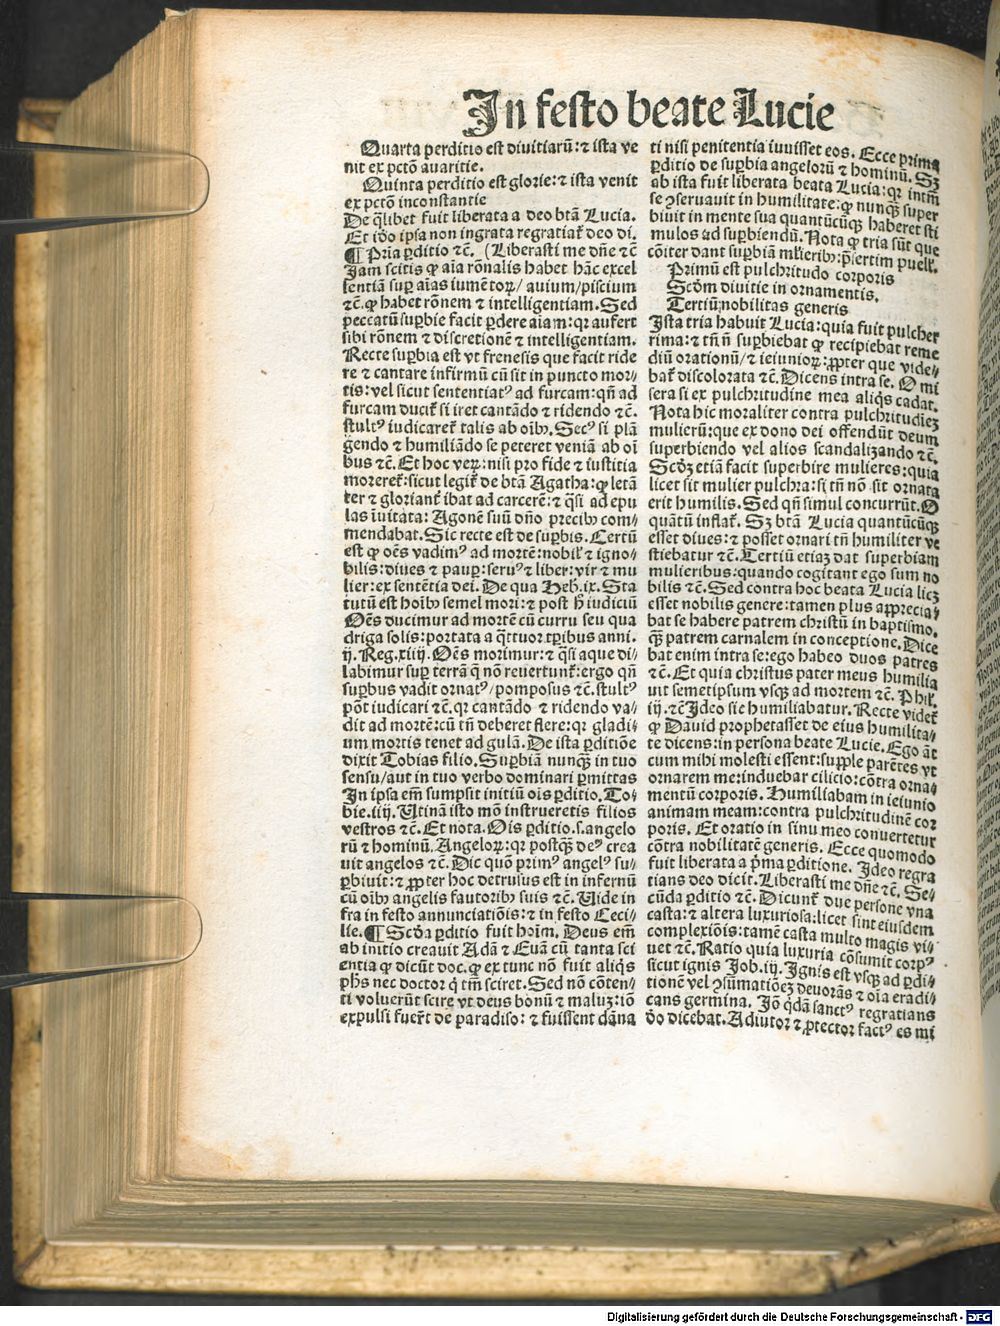 In festo beate Lucie
Quarta perditio est diuitiarū: ⁊ ista ve
nit ex pctō auaritie.
Quinta perditio est glorie: ⁊ ista venit
ex pctō inconstantie
De q̄libet fuit liberata a deo btā Lucia.
Et iđo ipsa non ingrata regratiat̄ deo di.
¶ Pria ꝑditio ⁊c̄. (Liberasti me dn̄e ⁊c̄
Jam scitis ꝙ aīa rōnalis habet hāc excel
lentiā suꝑ aīas iumētoꝝ/ auium/piscium
⁊c̄. ꝙ habet rōnem ⁊ intelligentiam. Sed
peccatū suꝑbie facit ꝑdere aīam: qꝛ aufert
sibi rōnem ⁊ discretionē ⁊ intelligentiam.
Recte suꝑbia est vt frenesis que facit ride
re ⁊ cantare infirmū cū sit in puncto mor⸗
tis: vel sicut sententiatꝰ ad furcam: qn̄ ad
furcam ducit̄ si iret cantādo ⁊ ridendo ⁊c̄.
stultꝰ iudicaret̄ talis ab oībꝫ. Secꝰ si plā
gendo ⁊ humiliādo se peteret veniā ab oī
bus ⁊c̄. Et hoc veꝝ: nisi pro fide ⁊ iustitia
moreret̄: sicut legit̄ de btā Agatha: ꝙ letā
ter ⁊ gloriant̄ ibat ad carcerē: ⁊ q̄si ad epu
las īuitata: Agonē suū dn̄o precibꝫ com⸗
mendabat. Sic recte est de suꝑbis. Certū
est ꝙ oēs vadimꝰ ad mortē: nobil̄ ⁊ igno⸗
bilis: diues ⁊ pauꝑ: seruꝰ ⁊ liber: vir ⁊ mu
lier: ex sentētia dei. De qua Heb. ix. Sta
tutū est hoībꝫ semel mori: ⁊ post h̄ iudiciū
Oēs ducimur ad mortē cū curru seu qua
driga solis: portata a q̄ttuor tꝑibus anni.
ij. Reg. xiiij. Oēs morimur: ⁊ q̄si aque di⸗
labimur suꝑ terrā q̄ nō reuertunt̄: ergo qn̄
suꝑbus vadit ornatꝰ/pomposus ⁊c̄. stultꝰ
pōt iudicari ⁊c̄. qꝛ cantādo ⁊ ridendo va⸗
dit ad mortē: cū tn̄ deberet flere: qꝛ gladi⸗
um mortis tenet ad gulā. De ista ꝑditiōe
dixit Tobias filio. Suꝑbiā nunqꝫ in tuo
sensu/aut in tuo verbo dominari ꝑmittas
Jn ipsa em̄ sumpsit initiū oīs ꝑditio. To⸗
bie. iiij. Utinā isto mō instrueretis filios
vestros ⁊c̄. Et nota. Oīs ꝑditio. s. angelo
rū ⁊ hominū. Angeloꝝ: qꝛ postqꝫ deꝰ crea
uit angelos ⁊c̄. Dic quō primꝰ angelꝰ su⸗
ꝑbiuit: ⁊ ꝓpter hoc detrusus est in infernū
cū oībꝫ angelis fautoribꝫ suis ⁊c̄. Uide in
fra in festo annunciatiōis: ⁊ in festo Ceci⸗
lie. ¶ Scđa ꝑditio fuit hoīm. Deus em̄
ab initio creauit Adā ⁊ Euā cū tanta sci
entia ꝙ dicūt doc. ꝙ ex tunc nō fuit aliq̄s
ph̄s nec doctor q̄ tm̄ sciret. Sed nō cōten⸗
ti voluerūt scire vt deus bonū ⁊ maluꝫ: iō
expulsi fuer̄t de paradiso: ⁊ fuissent dāna
ti nisi penitentia iuuisset eos. Ecce prima
ꝑditio de suꝑbia angeloꝝ ⁊ hominū. Sꝫ
ab ista fuit liberata beata Lucia: qꝛ intm̄
se ꝯseruauit in humilitate: ꝙ nunqꝫ super
biuit in mente sua quantūcūqꝫ haberet sti
mulos ad suꝑbiendū. Nota ꝙ tria sūt que
cōiter dant suꝑbiā mlierībꝫ: p̄sertim puell̄.
Primū est pulchritudo corporis
Scđm diuitie in ornamentis.
Tertiū: nobilitas generis
Jsta tria habuit Lucia: quia fuit pulcher
rima: ⁊ tn̄ nō suꝑbiebat ꝙ recipiebat reme
diū orationū/ ⁊ ieiunioꝝ: ꝓpter que vide⸗
bat̄ discolorata ⁊c̄. Dicens intra se. O mi
sera si ex pulchritudine mea aliq̄s cadat.
Nota hic moraliter contra pulchritudīeꝫ
mulierū: que ex dono dei offendūt deum
superbiendo vel alios scandalizando ⁊c̄.
Scđꝫ etiā facit superbire mulieres: quia
licet sit mulier pulchra: si tn̄ nō sit ornata
erit humilis. Sed qn̄ simul concurrūt. O
quātū inflat̄. Sꝫ btā Lucia quantūcūqꝫ
esset diues: ⁊ posset ornari tn̄ humiliter ve
stiebatur ⁊c̄. Tertiū etiaꝫ dat superbiam
mulieribus: quando cogitant ego sum no
bilis ⁊c̄. Sed contra hoc beata Lucia licꝫ
esset nobilis genere: tamen plus apprecia⸗
bat se habere patrem christū in baptismo.
qꝫ patrem carnalem in conceptione. Dice
bat enim intra se: ego habeo duos patres
⁊c̄. Et quia christus pater meus humilia
uit semetipsum vsqꝫ ad mortem ⁊c̄. Phil̄.
ij. ⁊c̄ Jdeo sic humiliabatur. Recte videt̄
ꝙ Dauid prophetasset de eius humilita⸗
te dicens: in persona beate Lucie. Ego āt
cum mihi molesti essent: supple parētes vt
ornarem me: induebar cilicio: cōtra orna⸗
mentū corporis. Humiliabam in ieiunio
animam meam: contra pulchritudinē cor
poris. Et oratio in sinu meo conuertetur
cōtra nobilitatē generis. Ecce quomodo
fuit liberata a p̄ma ꝑditione. Jdeo regra
tians deo dicit. Liberasti me dn̄e ⁊c̄. Se⸗
cūda ꝑditio ⁊c̄. Dicunt̄ due persone vna
casta: ⁊ altera luxuriosa: licet sint eiusdem
complexiōis: tamē casta multo magis vi⸗
uet ⁊c̄. Ratio quia luxuria cōsumit corpꝰ
sicut ignis Job. iij. Jgnis est vsqꝫ ad ꝑdi⸗
tionē vel ꝯsūmatiōeꝫ deuorās ⁊ oīa eradi⸗
cans germina. Jō qdā sanctꝰ regratians
đo dicebat. Adiutor ⁊ ꝓtector factꝰ es mi
Digitalisierung gefördert durch die Deutsche Forschungsgemeinschaft - DFG